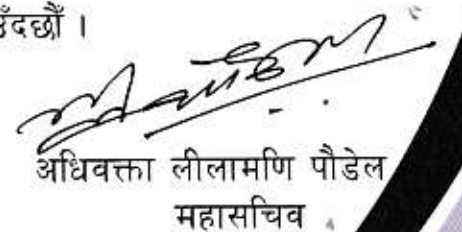 ।
अधिवक्ता लीलामणि पौडेल
महासचिव